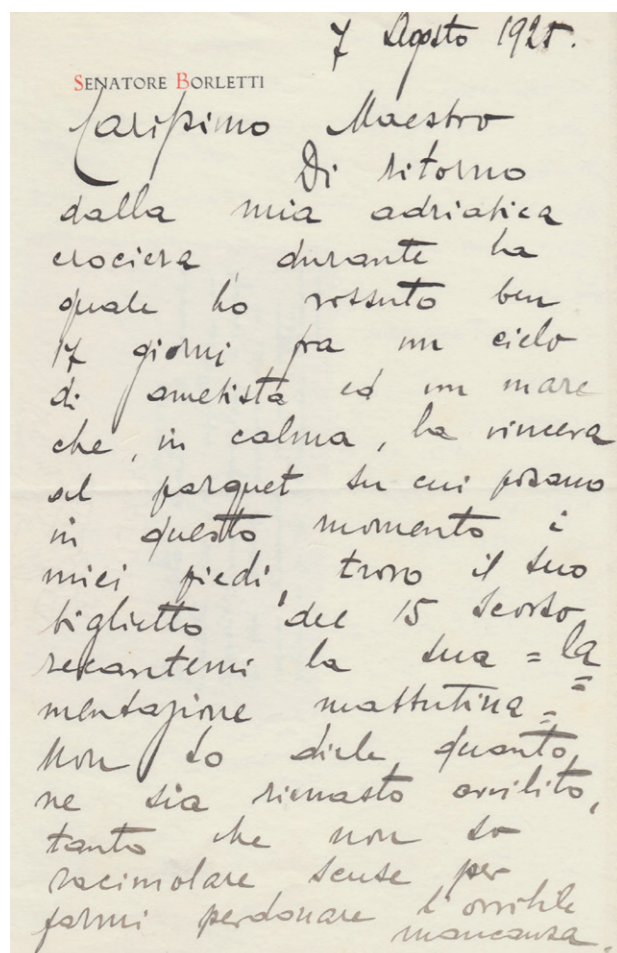 7 Agosto 1925.
SENATORE BORLETTI
Carissimo Maestro
Di ritorno
dalla mia adriatica
crociera, durante la
quale ho vossuto ben
17 giorni fra un cielo
di ametista ed un mare
che, in calma, la vinceva
al parquet su cui posano
in questo momento i
miei piedi, trovo il suo
biglietto del 15 scorso
recantemi la sua = la
mentazione mattutina =
Non so dirle quanto
ne sia rimasto avvilito,
tanto che non so
racimolare scuse per
farmi perdonare l'orribile
mancanza.